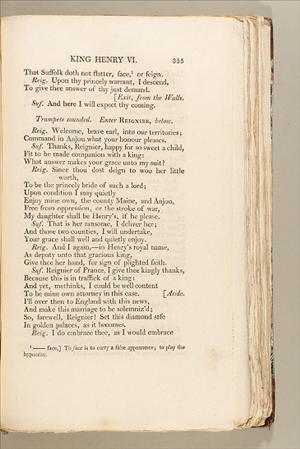 KING HENRY VI. 335
That Suffolk doth not flatter, face,¹ or feign.
Reig. Upon thy princely warrant, I descend,
To give thee answer of thy just demand.
[Exit, from the Walls.
Suf. And here I will expect thy coming.
Trumpets sounded. Enter REIGNIER, below.
Reig. Welcome, brave earl, into our territories;
Command in Anjou what your honour pleases.
Suf. Thanks, Reignier, happy for so sweet a child,
Fit to be made companion with a king:
What answer makes your grace unto my suit?
Reig. Since thou dost deign to woo her little
worth,
To be the princely bride of such a lord;
Upon condition I may quietly
Enjoy mine own, the county Maine, and Anjou,
Free from oppression, or the stroke of war,
My daughter shall be Henry's, if he please.
Suf. That is her ransome, I deliver her;
And those two counties, I will undertake,
Your grace shall well and quietly enjoy.
Reig. And I again,—in Henry's royal name,
As deputy unto that gracious king,
Give thee her hand, for sign of plighted faith.
Suf. Reignier of France, I give thee kingly thanks,
Because this is in traffick of a king:
And yet, methinks, I could be well content
To be mine own attorney in this case. [Aside.
I'll over then to England with this news,
And make this marriage to be solemniz'd;
So, farewell, Reignier! Set this diamond safe
In golden palaces, as it becomes.
Reig. I do embrace thee, as I would embrace
¹ —— face,] To face is to carry a false appearance; to play the
hypocrite.